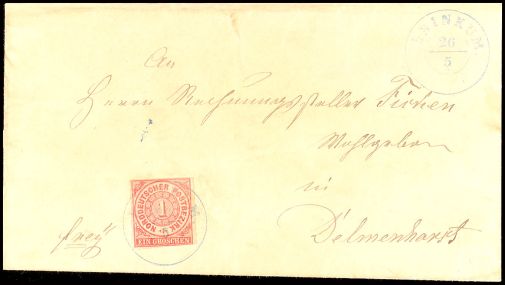 26
5
An
Herrn Rechnungssteller
Wohlgeboren
in
Delmenhorst
frey
NORDDEUTSCHER POSTBEZIRK
1
EIN GROSCHEN